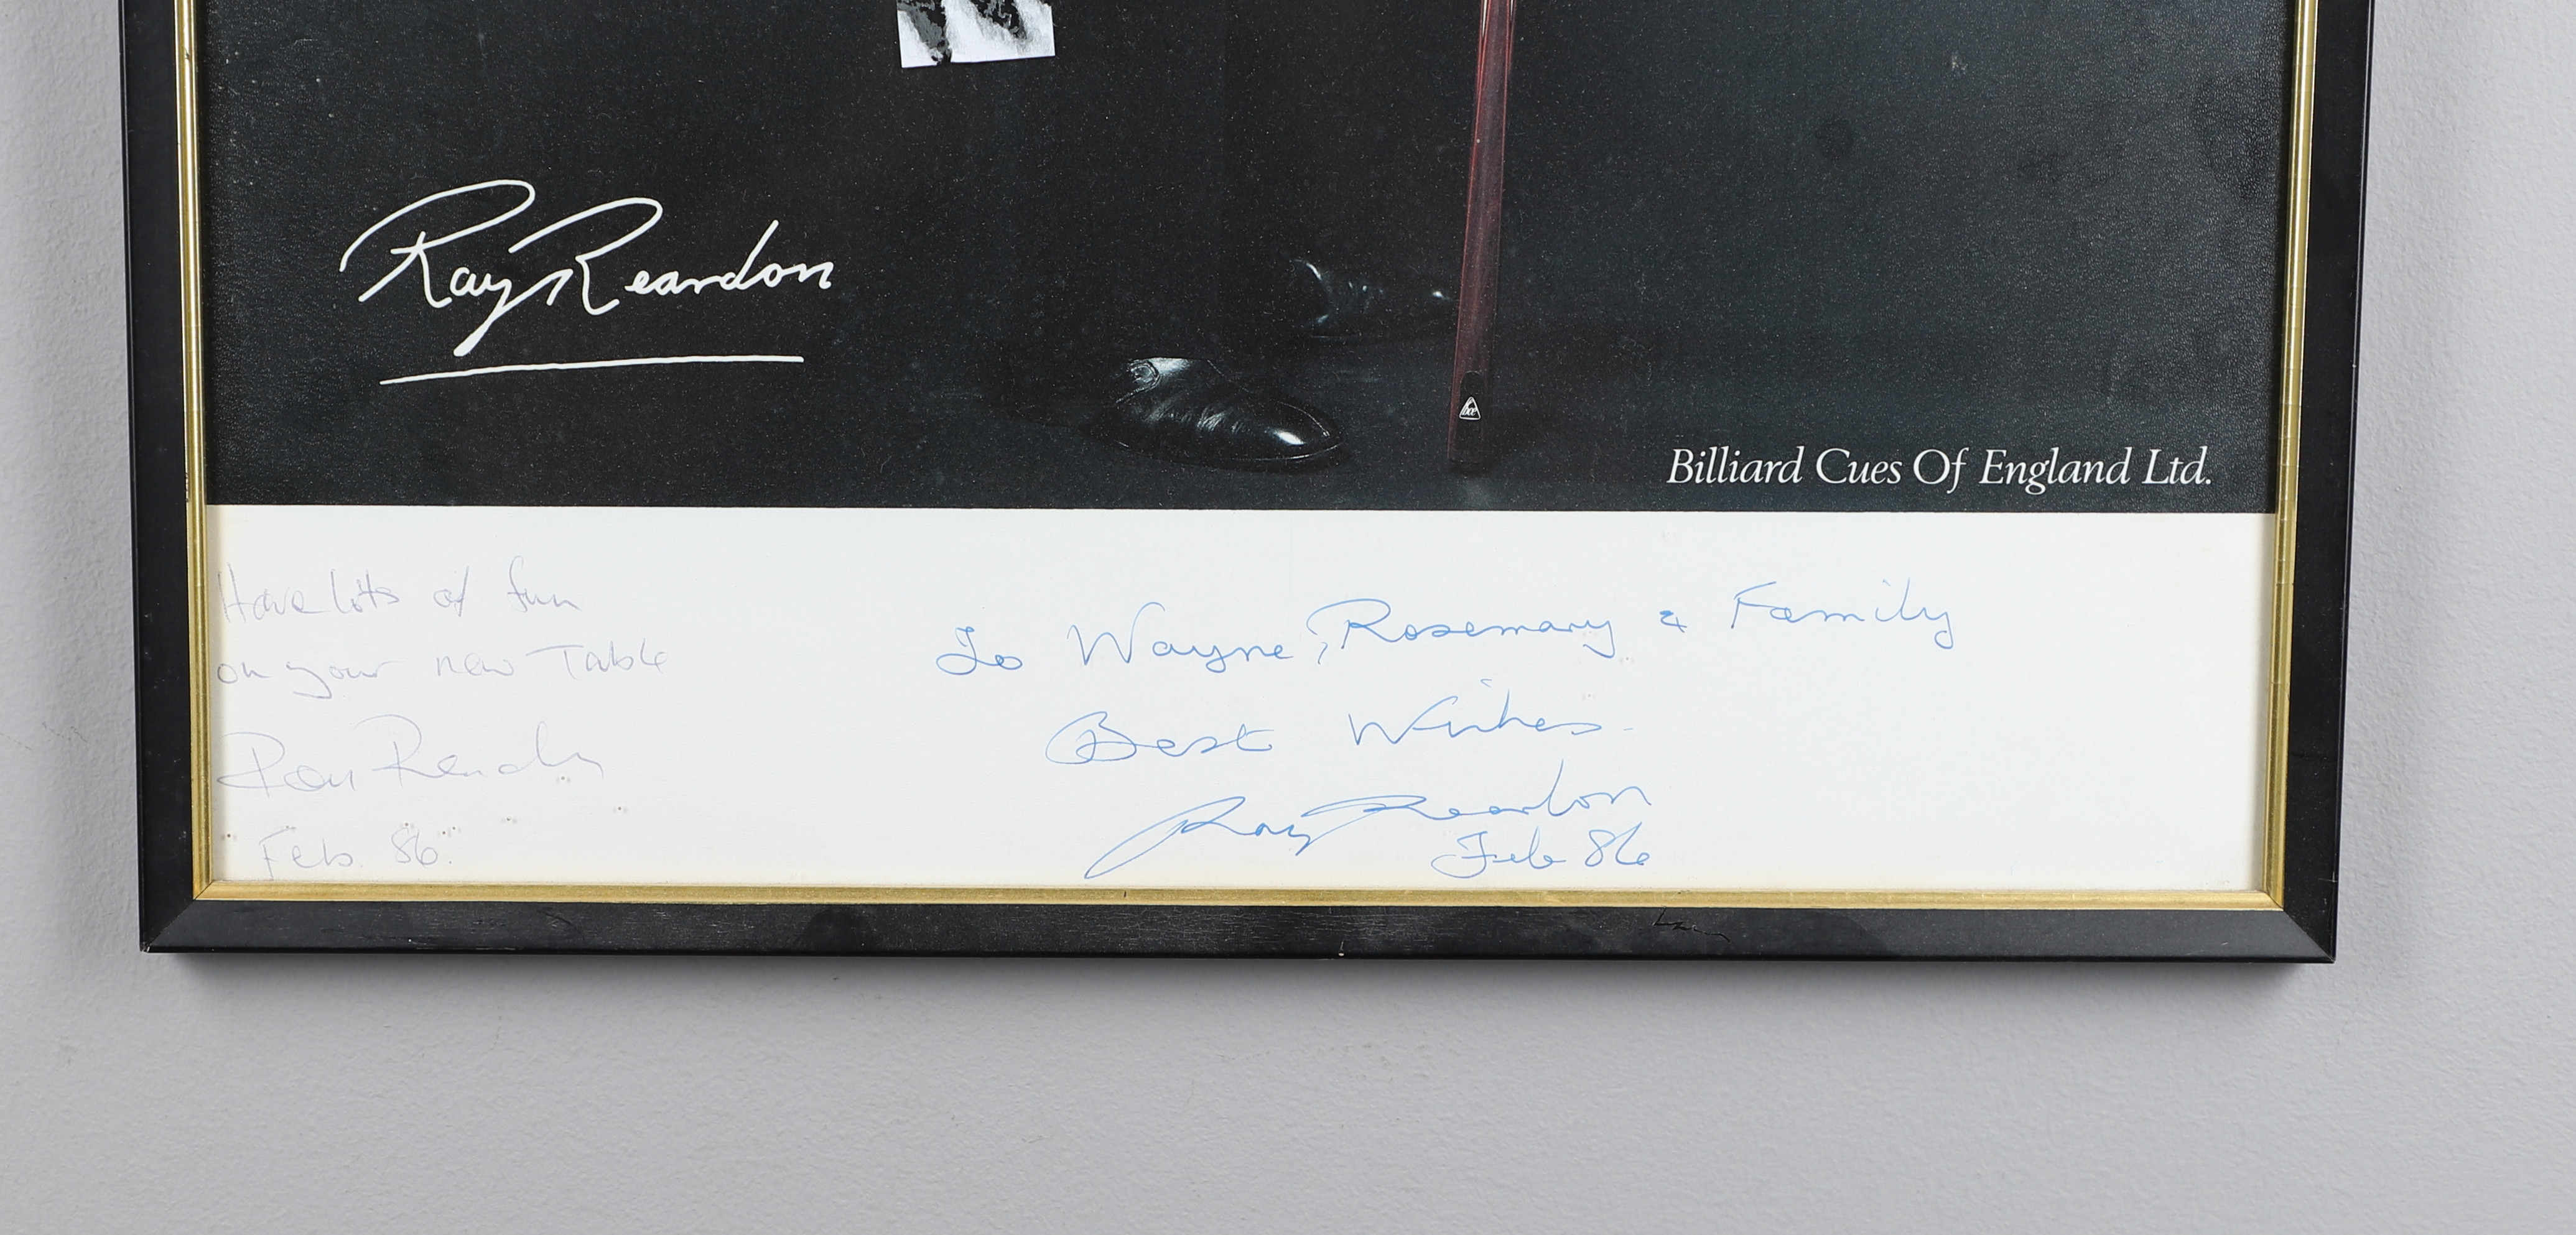 Ray Reardon
bce
Billiard Cues Of England Ltd.
Have lots of fun
on your new Table
Feb. 86.
To Wayne, Rosemary & Family
Best Wishes
Ray Reardon
Feb 86